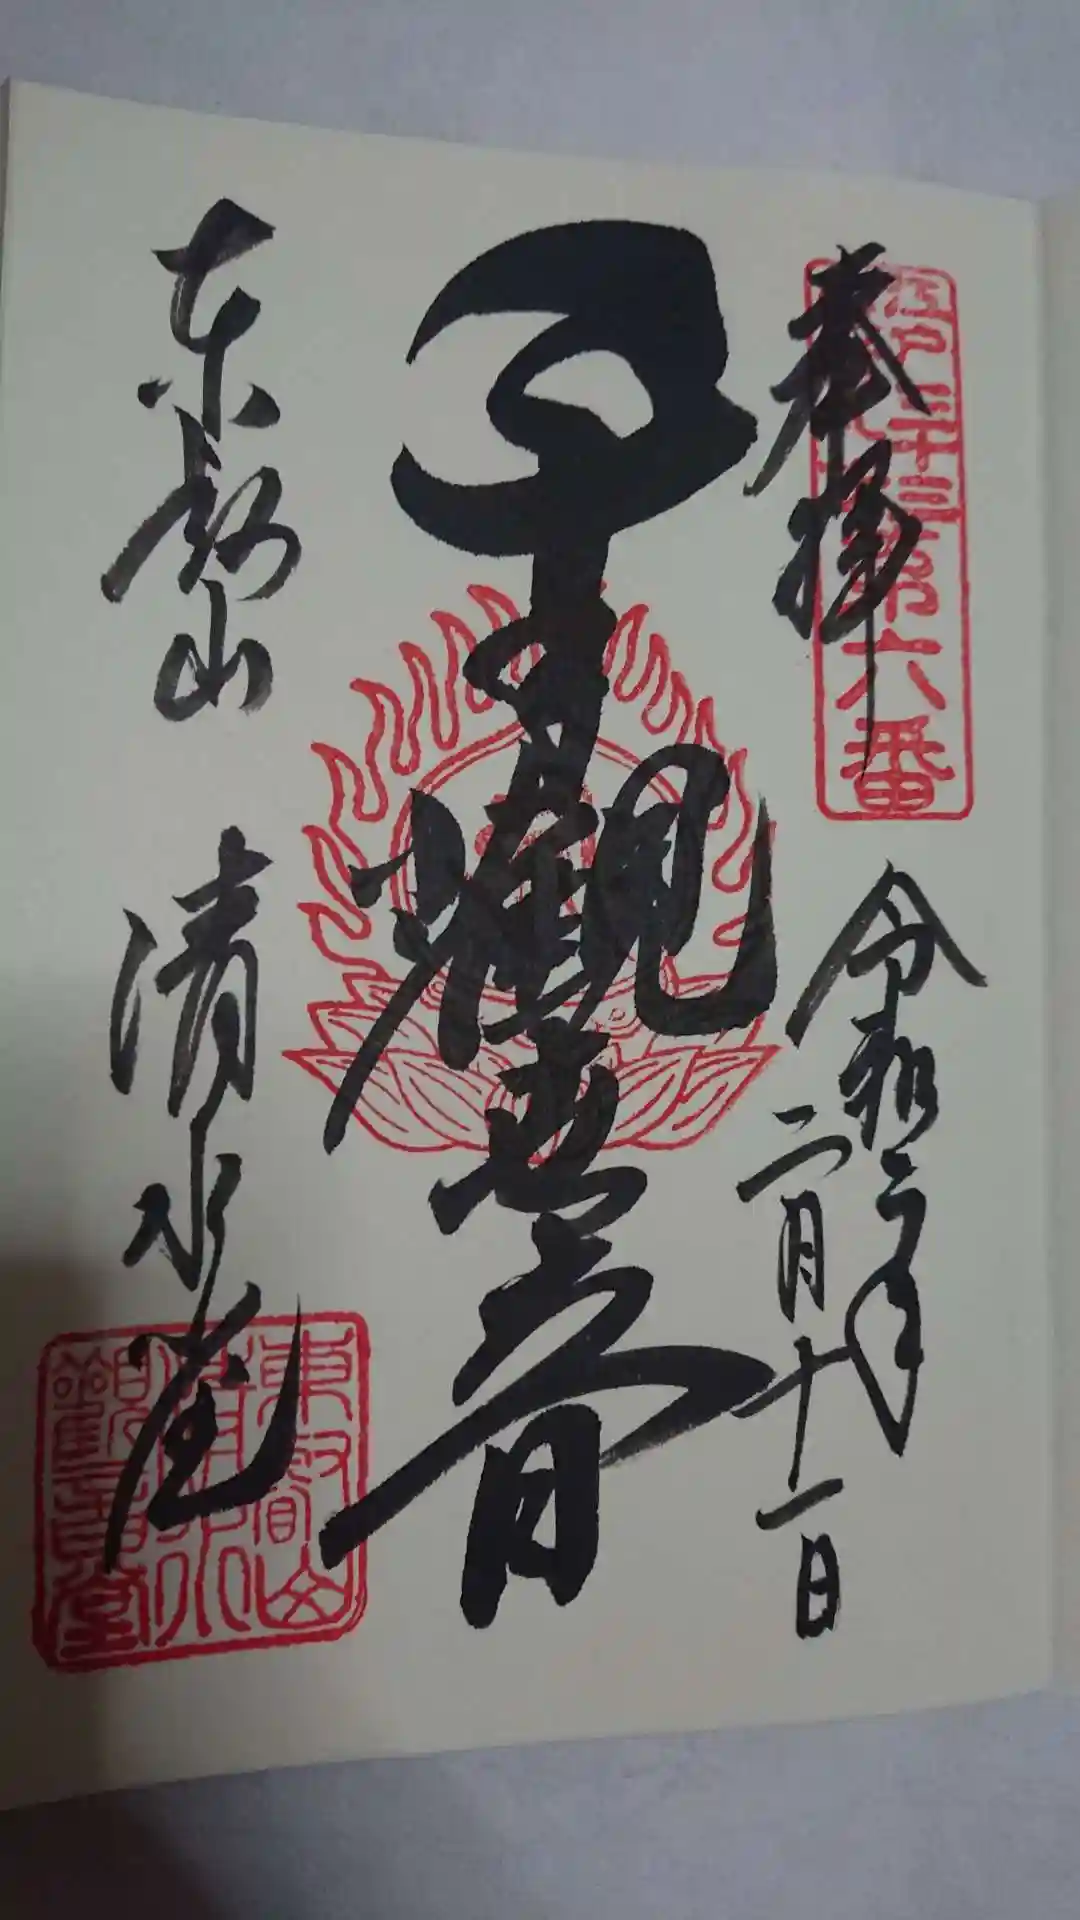 奉拝
江戸三十三ヶ所第六番
令和二年
二月十一日
千手觀世音
東叡山 清水堂
東叡山
清水
觀音堂